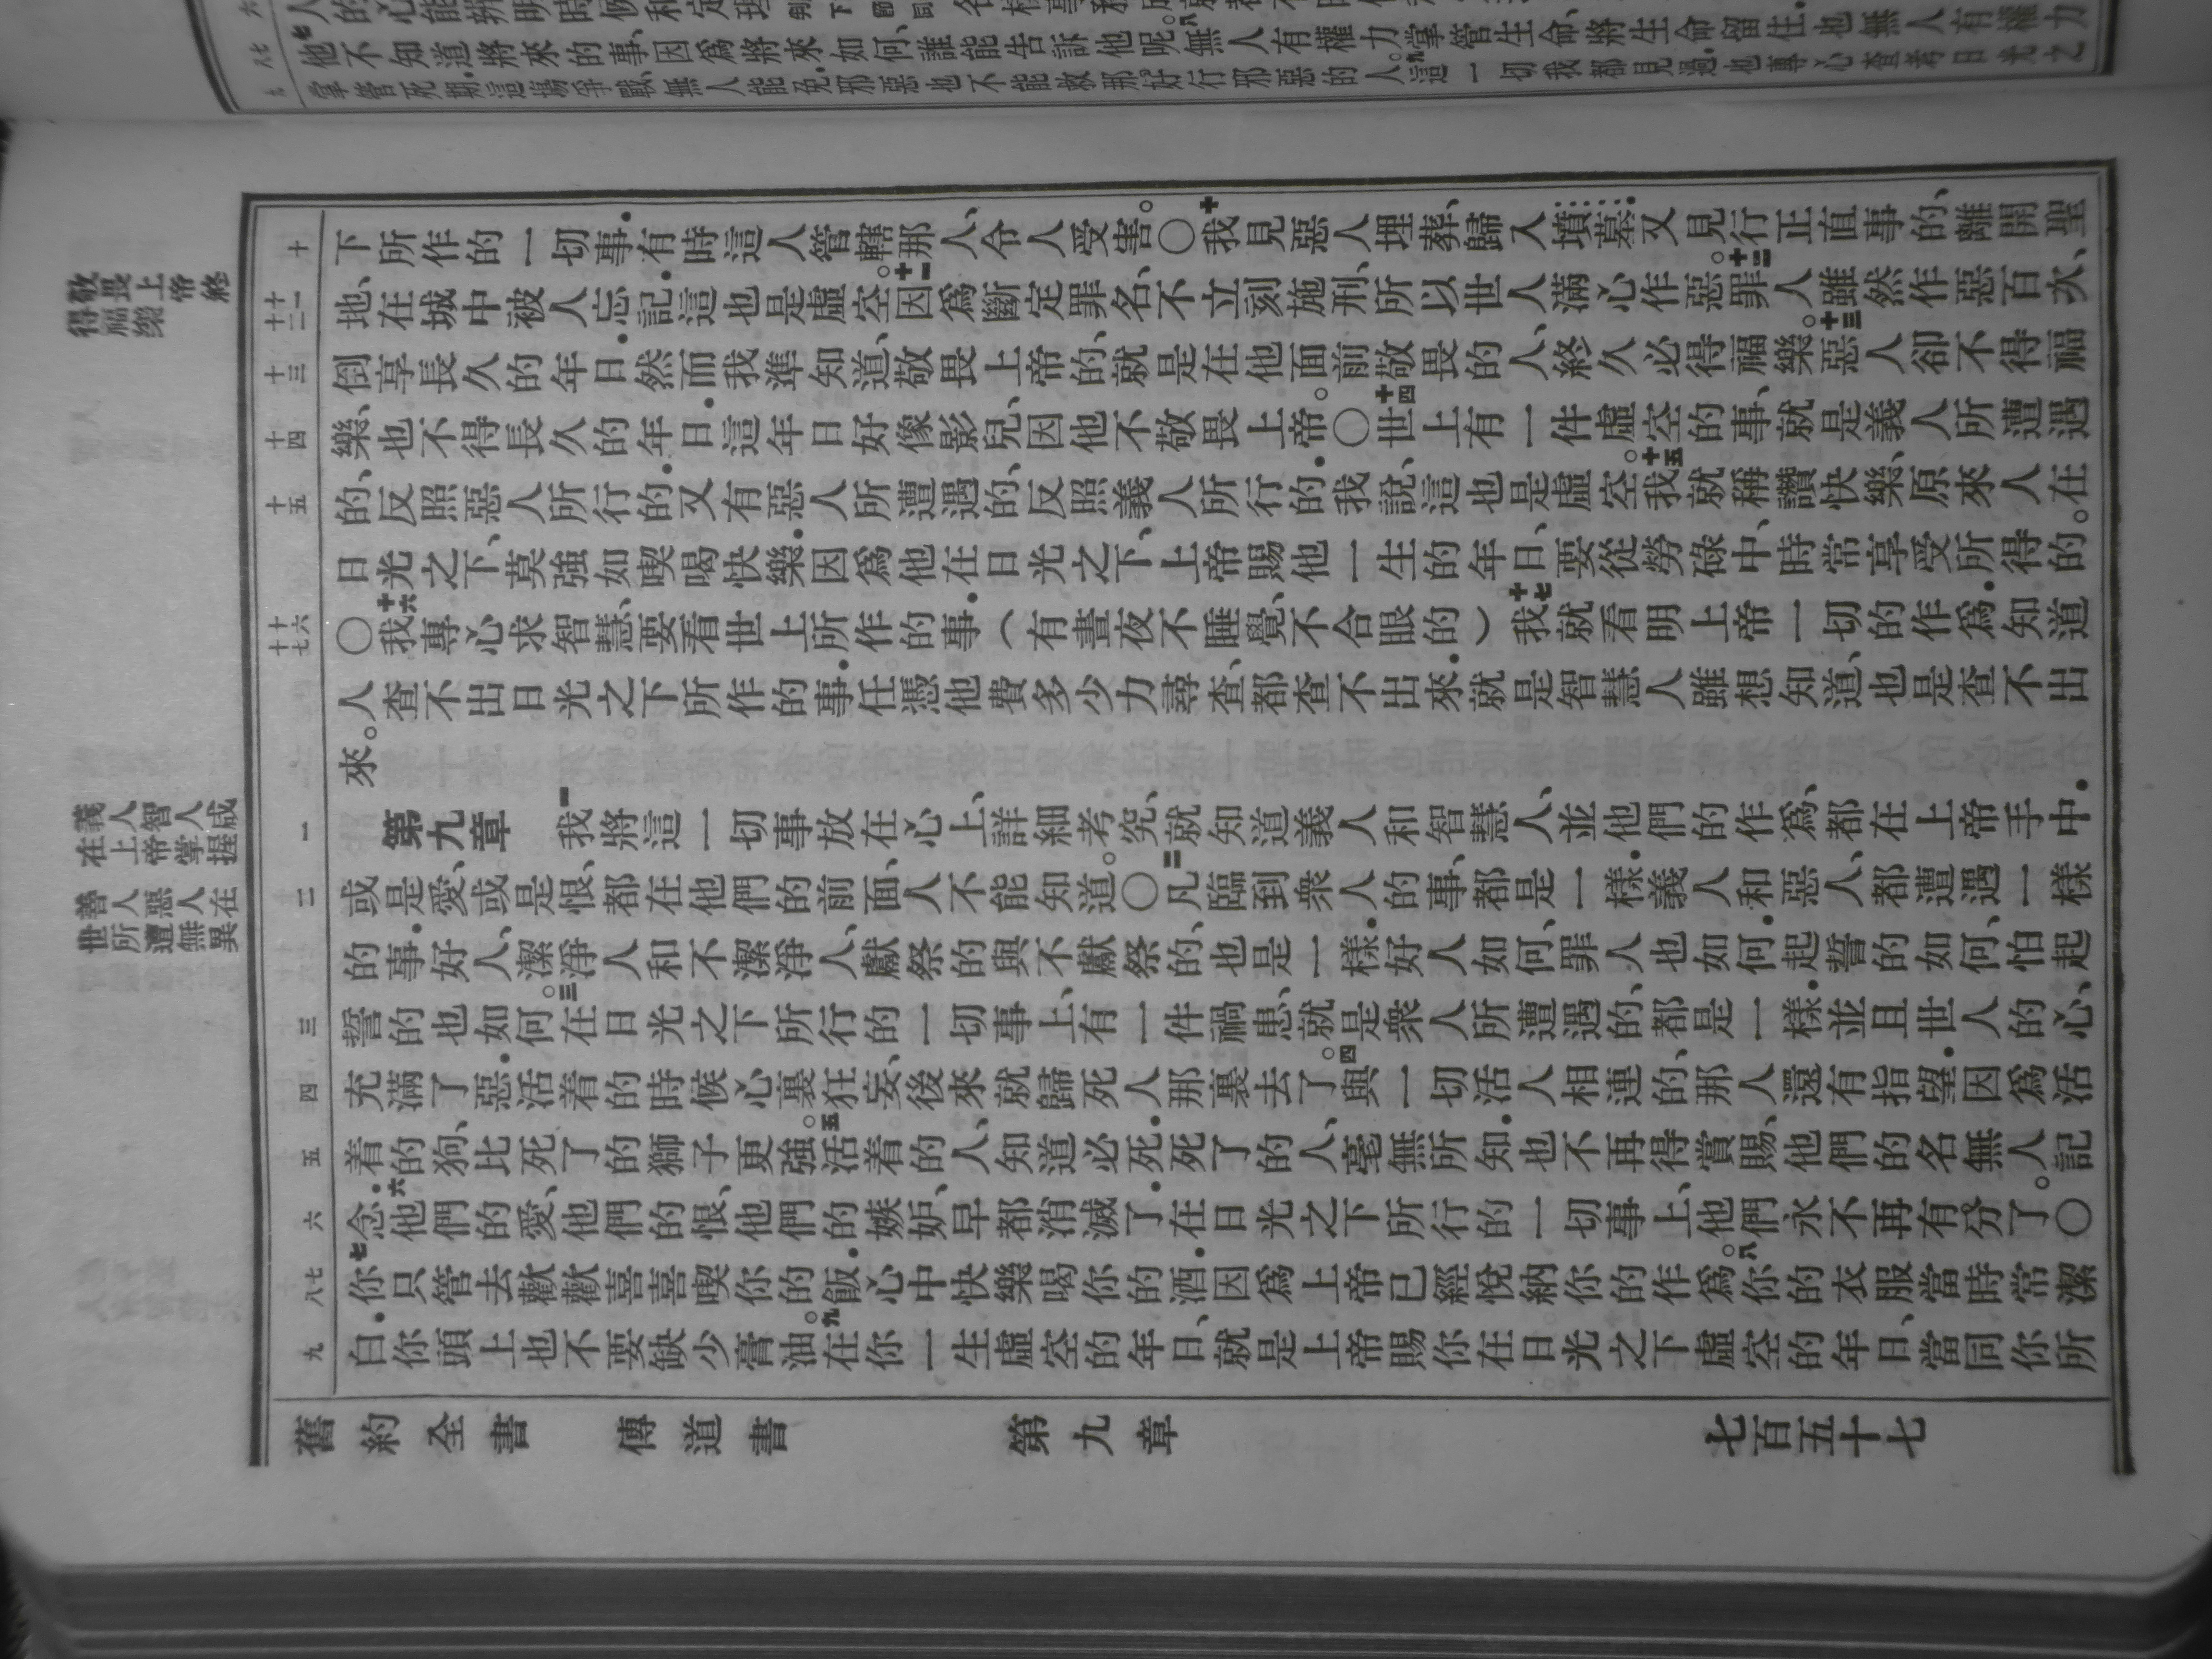 他不知道將來的事、因爲將來如何、誰能告訴他呢。八無人有權力掌管生命、將生命留住．也無人有權力
掌管死期．這場爭戰、無人能免．邪惡也不能救那好行邪惡的人。九這一切我都見過、也專心查考日光之
敬畏上帝終
得福樂
十
十一
十二
十三
十四
十五
十六
十七
下所作的一切事．有時這人管轄那人、令人受害。〇十我見惡人埋葬、歸入墳墓．又見行正直事的、離開聖
地、在城中被人忘記．這也是虛空。十一因爲斷定罪名、不立刻施刑、所以世人滿心作惡。十二罪人雖然作惡百次、
倒享長久的年日．然而我準知道、敬畏上帝的、就是在他面前敬畏的人、終久必得福樂。十三惡人卻不得福
樂、也不得長久的年日．這年日好像影兒、因他不敬畏上帝。〇十四世上有一件虛空的事、就是義人所遭遇
的、反照惡人所行的．又有惡人所遭遇的、反照義人所行的．我說、這也是虛空。十五我就稱讚快樂、原來人在
日光之下、莫強如喫喝快樂．因爲他在日光之下、上帝賜他一生的年日、要從勞碌中、時常享受所得的。
〇十六我專心求智慧、要看世上所作的事．（有晝夜不睡覺、不合眼的）十七我就看明上帝一切的作爲．知道
人查不出日光之下所作的事．任憑他費多少力尋查、都查不出來．就是智慧人雖想知道、也是查不出
來。
義人智人咸
在上帝掌握
善人惡人在
世所遭無異
一
二
三
四
五
六
七
八
九
第九章 一我將這一切事放在心上、詳細考究、就知道義人和智慧人、並他們的作爲、都在上帝手中．
或是愛、或是恨、都在他們的前面、人不能知道。〇二凡臨到衆人的事、都是一樣．義人和惡人、都遭遇一樣
的事．好人、潔淨人和不潔淨人、獻祭的與不獻祭的、也是一樣．好人如何、罪人也如何．起誓的如何、怕起
誓的也如何。三在日光之下所行的一切事上、有一件禍患、就是衆人所遭遇的、都是一樣．並且世人的心、
充滿了惡．活着的時候心裏狂妄、後來就歸死人那裏去了。四與一切活人相連的、那人還有指望．因爲活
着的狗、比死了的獅子更強。五活着的人、知道必死．死了的人、毫無所知．也不再得賞賜、他們的名無人記
念．六他們的愛、他們的恨、他們的嫉妒、早都消滅了．在日光之下所行的一切事上、他們永不再有分了。〇
七你只管去歡歡喜喜喫你的飯．心中快樂喝你的酒．因爲上帝已經悅納你的作爲。八你的衣服當時常潔
白．你頭上也不要缺少膏油。九在你一生虛空的年日、就是上帝賜你在日光之下虛空的年日、當同你所
舊約全書 傳道書 第九章 七百五十七